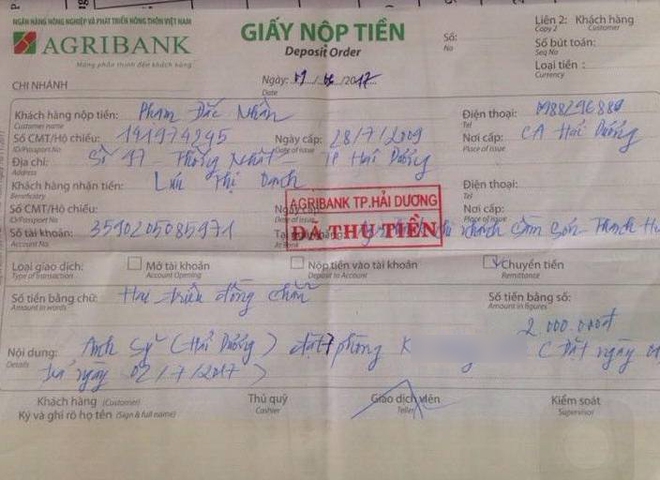 NGÂN HÀNG NÔNG NGHIỆP VÀ PHÁT TRIỂN NÔNG THÔN VIỆT NAM
AGRIBANK
Mang phồn thịnh đến khách hàng
CHI NHÁNH
GIẤY NỘP TIỀN
Deposit Order
Ngày: /2017
Date
Số:
No
Liên 2: Khách hàng
Copy 2 Customer
Số bút toán:
Seq No
Loại tiền :
Currency
Khách hàng nộp tiền: Phạm Đắc Nhân Điện thoại:
Customer name Tel
Số CMT/Hộ chiếu: 141974295 Ngày cấp: 28/7/2009 Nơi cấp: CA Hải Dương
ID/Passport No Date of issue Place of issue
Địa chỉ: Số 17 - Thống Nhất - TP Hải Dương
Address
Khách hàng nhận tiền: Thị Điện thoại:
Beneficiary Tel
AGRIBANK TP.HẢI DƯƠNG
ĐÃ THU TIỀN
Số CMT/Hộ chiếu: Nơi cấp:
ID/Passport No Place of issue
Số tài khoản: 3510205085971 nhánh Sầm Sơn - Thanh
Account No.
Loại giao dịch: Mở tài khoản Nộp tiền vào tài khoản Chuyển tiền
Type of transaction Account Opening Deposit to Account Remittance
Số tiền bằng chữ: Hai triệu đồng chẵn Số tiền bằng số:
Amount in words Amount in figures
2.000.000đ
Nội dung: Anh Sỹ (Hải Dương) đặt 7 phòng K C Đặt ngày 01
Details
trả ngày 02/7/2017)
Khách hàng (Customer) Thủ quỹ Giao dịch viên Kiểm soát
Ký và ghi rõ họ tên (Sign & full name) Cashier Teller Supervisor